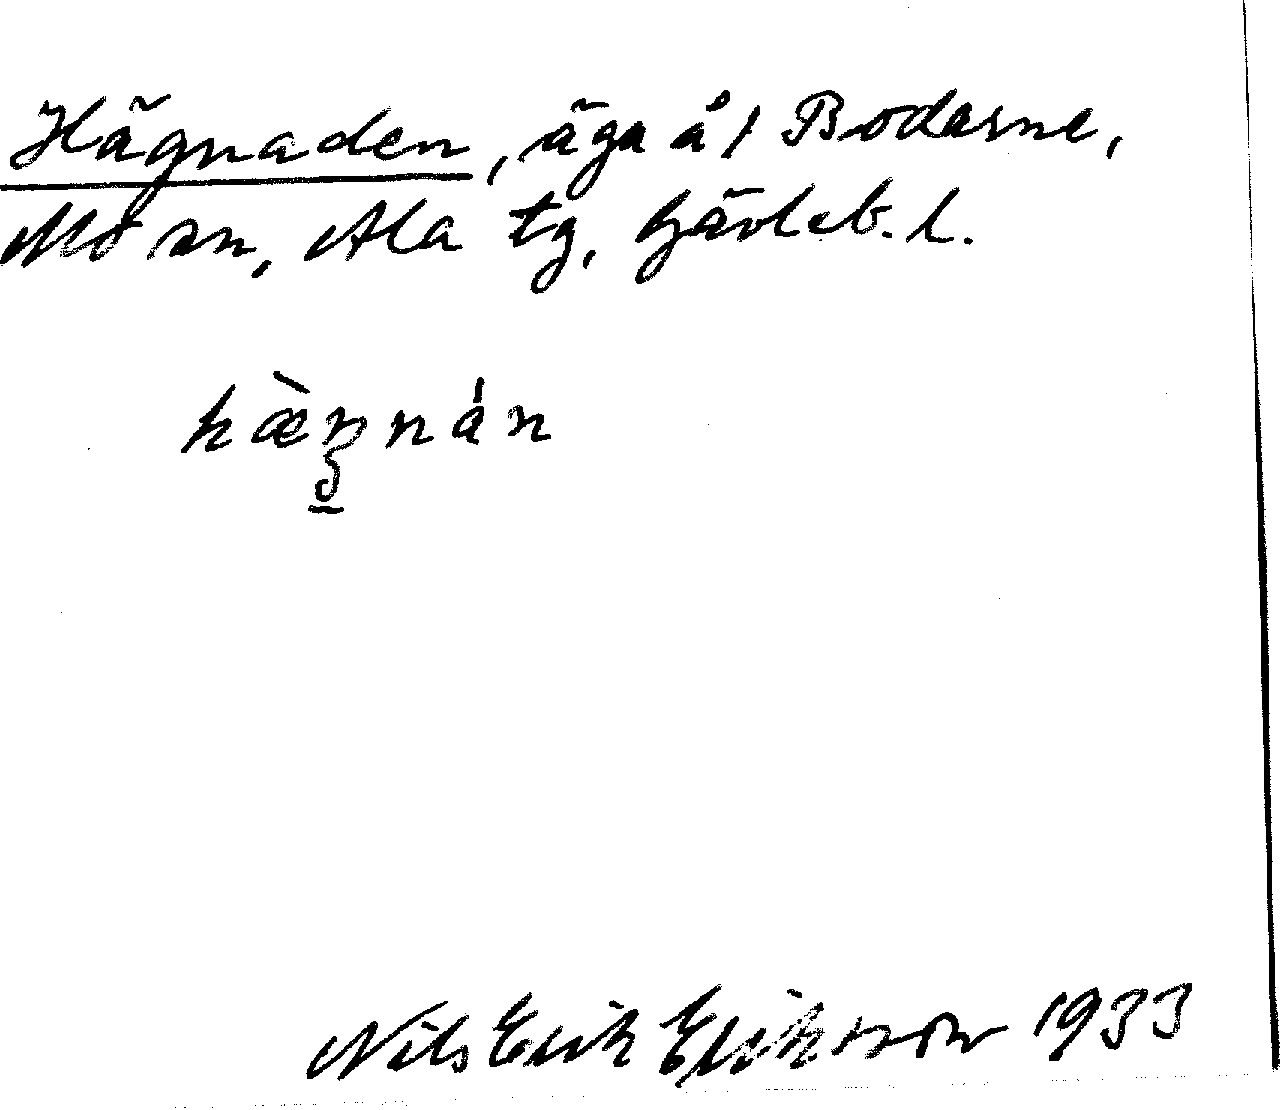 Hägnaden, äga å 1 Bodarne,
Mo sn, Ala tg, Gävleb. l.
hæ̀ŋnán
Nils Erik Eriksson 1933